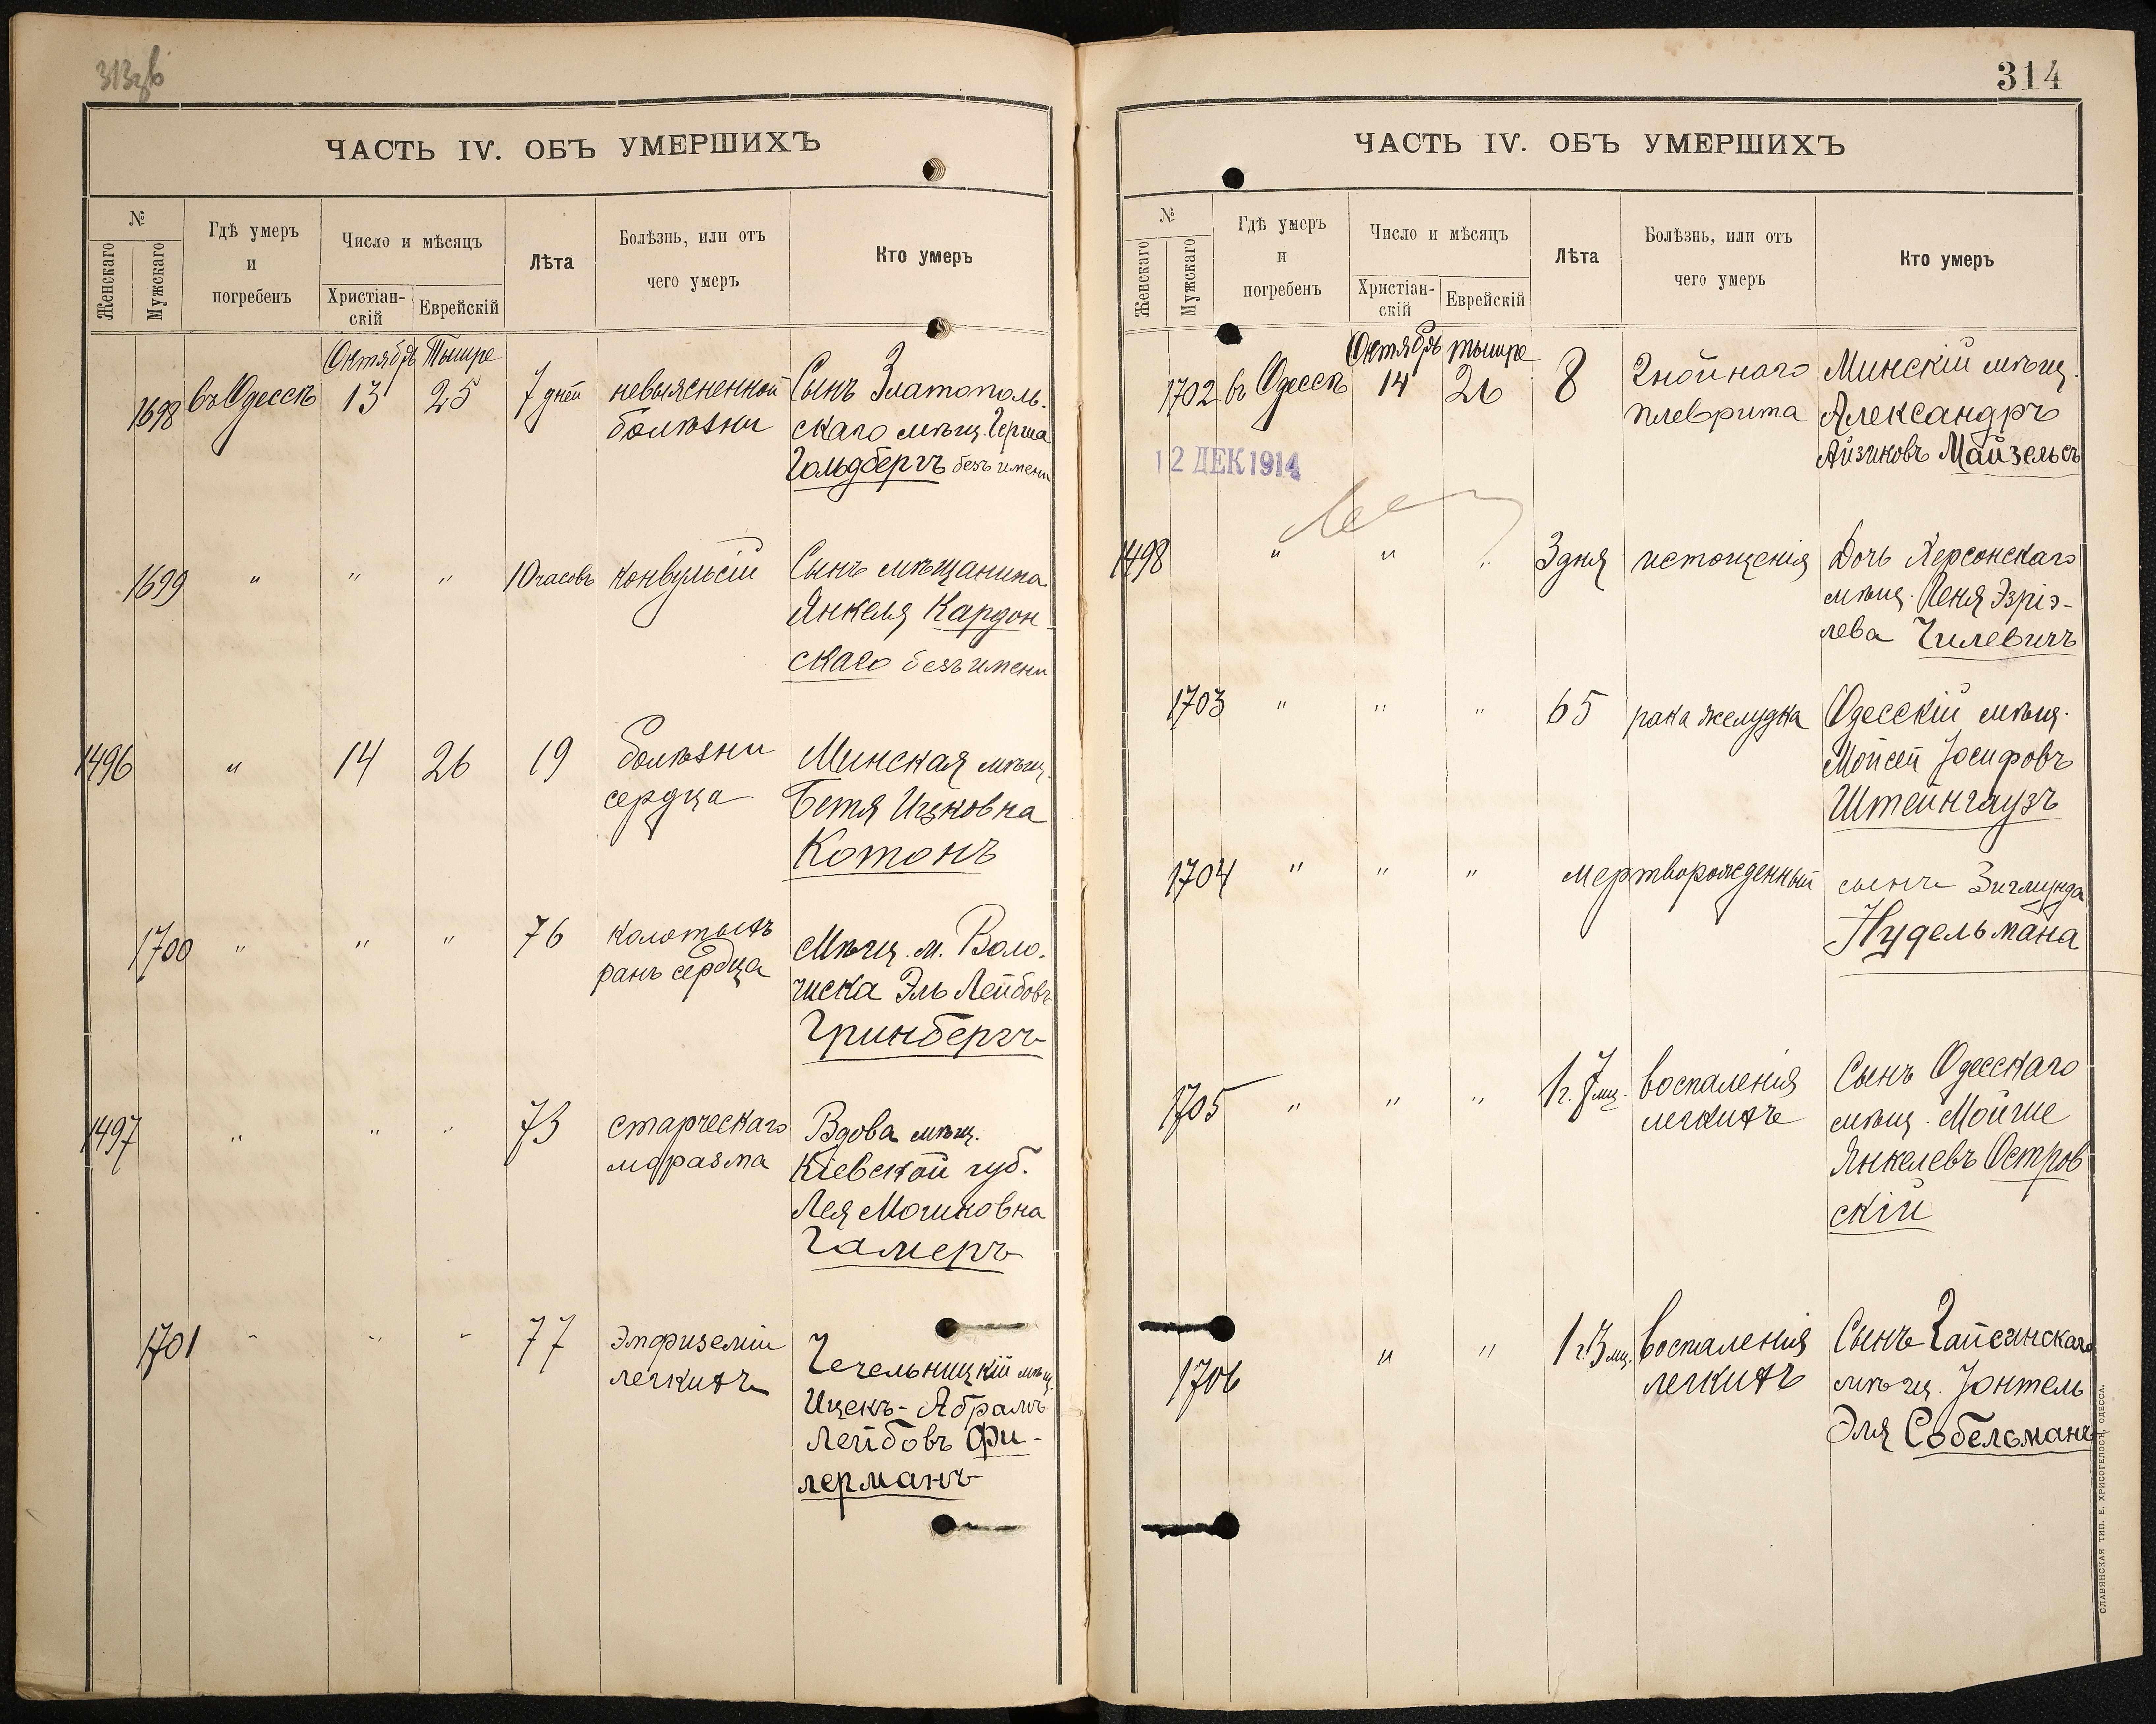 313об
ЧАСТЬ IV. ОБЪ УМЕРШИХЪ
№
Женскаго
Мужскаго
Гдѣ умеръ
и
погребенъ
Число и мѣсяцъ
Христіан-
скій
Еврейскій
Лѣта
Болѣзнь, или отъ
чего умеръ
Кто умеръ
Октябрь Тышре
1698 въ Одессѣ 13 25 7 дней невыясненной Сынъ Златополь-
болѣзни скаго мѣщ. Герша
Гольдбергъ безъ имени
1699 " " " 10 часовъ конвульсіи Сынъ мѣщанина
Янкеля Кардон-
скаго безъ имени
1496 " 14 26 19 болѣзни Минская мѣщ.
сердца Бетя Ицковна
Котонъ
1700 " " " 76 колотыхъ Мѣщ. м. Воло-
ранъ сердца чиска Эль Лейбовъ
Гринбергъ
1497 " " " 73 старческаго Вдова мѣщ.
маразма Кіевской губ.
Лея Мошковна
Гамеръ
1701 " " " 77 Эмфиземіи Чечельницкій мѣщ.
легкихъ Ицекъ-Абрамъ
Лейбовъ Фи-
лерманъ
314
ЧАСТЬ IV. ОБЪ УМЕРШИХЪ
№
Женскаго
Мужскаго
Гдѣ умеръ
и
погребенъ
Число и мѣсяцъ
Христіан-
скій
Еврейскій
Лѣта
Болѣзнь, или отъ
чего умеръ
Кто умеръ
Октябрь тышре
1702 въ Одессѣ 14 26 8 Гнойнаго Минскій мѣщ.
плеврита Александръ
Айзиковъ Майзельсъ
12 ДЕК 1914
1498 " " " 3 дня истощенія Дочь Херсонскаго
мѣщ. Женя Эзріэ-
лева Гилевичъ
1703 " " " 65 рака желудка Одесскій мѣщ.
Мойсей Іосифовъ
Штейнгаузъ
1704 " " " мертворожденный сынъ Зигмунда
Нудельмана
1705 " " " 1 г. 7 мц. воспаленія Сынъ Одесскаго
легкихъ мѣщ. Мойше
Янкелевъ Остров
скій
1706 " " 1 г. 3 мц. воспаленія Сынъ Гайсинскаго
легкихъ мѣщ. Іонтель
Эля Собельманъ
СЛАВЯНСКАЯ ТИП. Е. ХРИСОГЕЛОСЪ, ОДЕССА.